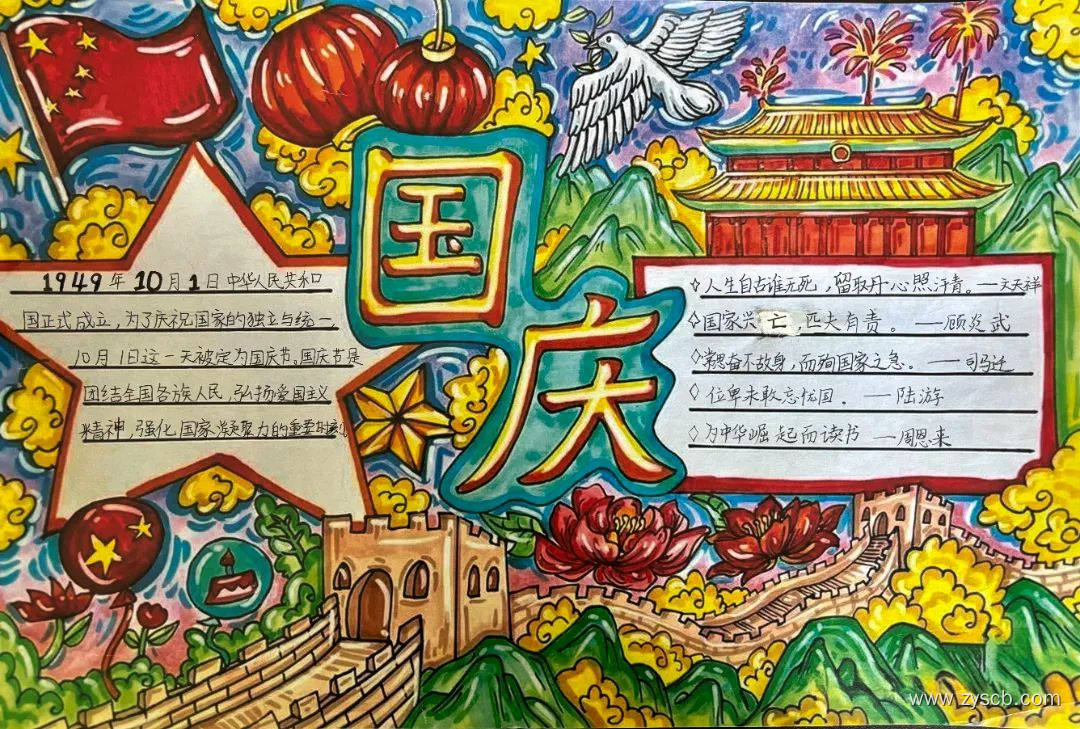 国庆
1949年10月1日中华人民共和
国正式成立，为了庆祝国家的独立与统一，
10月1日这一天被定为国庆节。国庆节是
团结全国各族人民，弘扬爱国主义
精神，强化国家凝聚力的重要时刻。
◇人生自古谁无死，留取丹心照汗青。—文天祥
◇国家兴亡，匹夫有责。——顾炎武
◇常思奋不顾身，而殉国家之急。——司马迁
◇位卑未敢忘忧国。——陆游
◇为中华崛起而读书——周恩来
www.zyscb.com